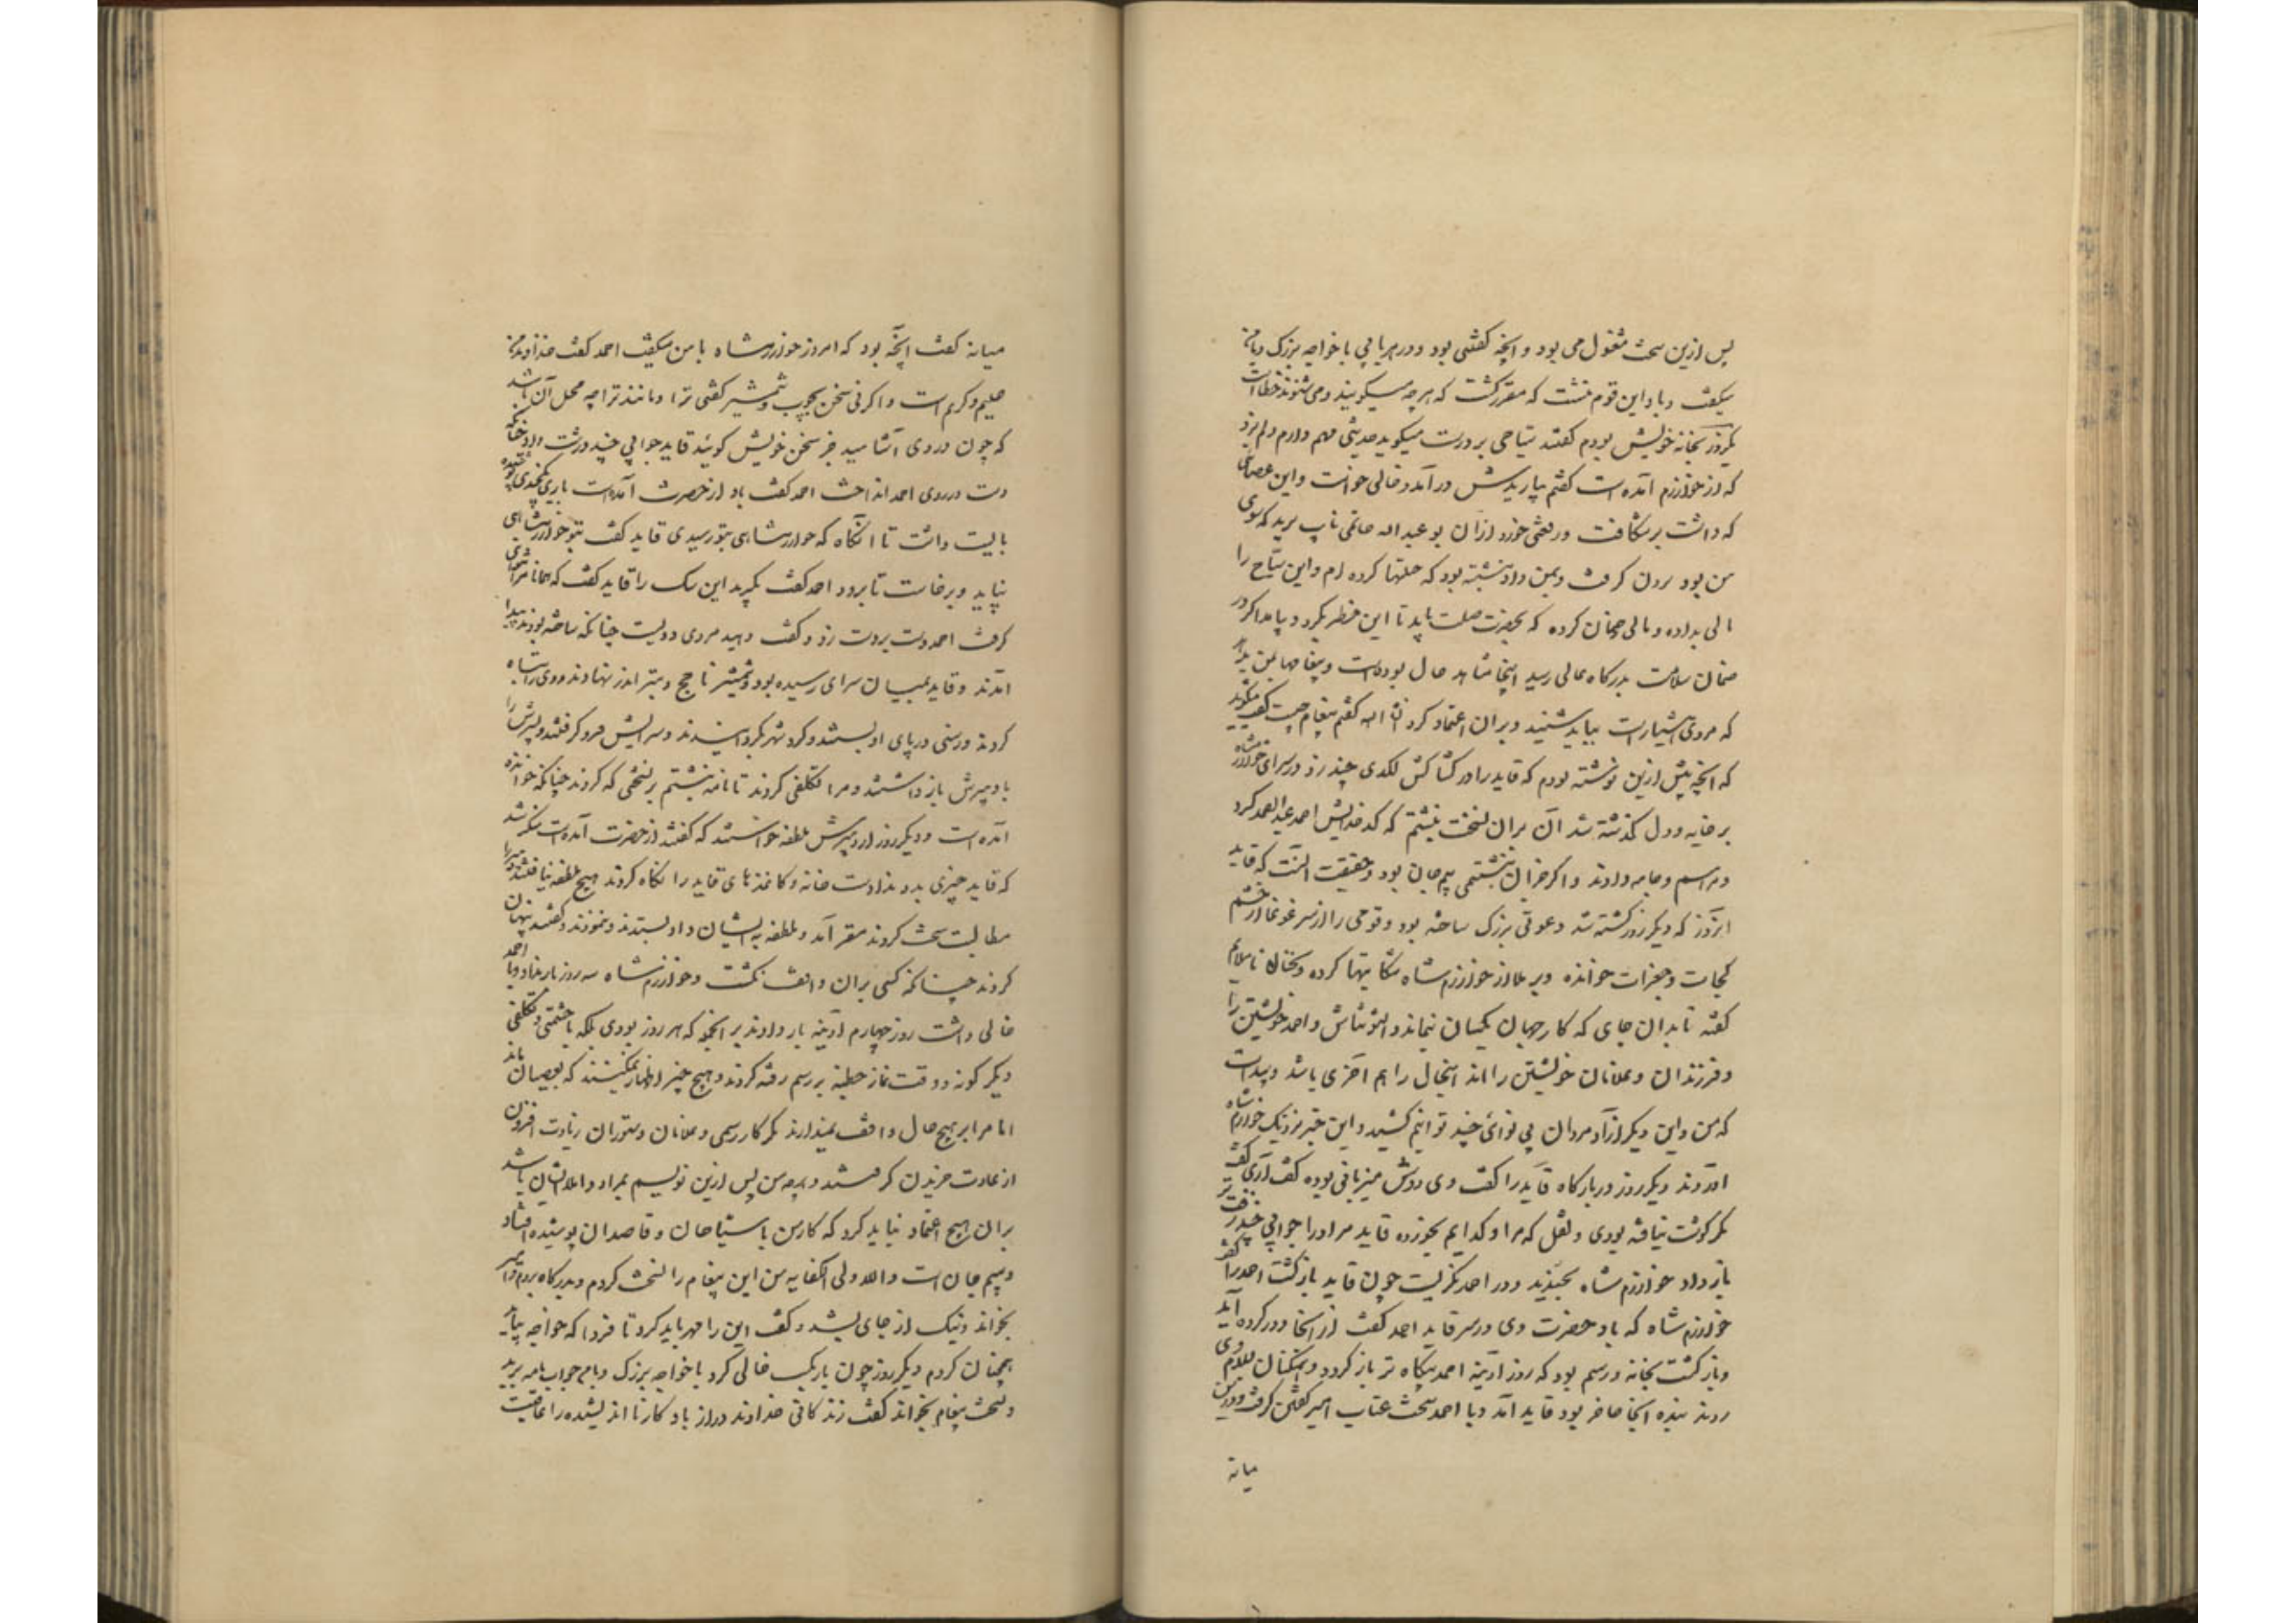 پس ازین سخت مشغول می بود و آنچه کفتنی بود و در هر بابی با خواجه بزرک و با من
میکفت و باد این قوم ننشست که مقرر کشت که هرچه میکویند و می شنوند خطاست
یکروز بخانه خویش بودم کفتند سیاحی بر درست میکوید حدیثی مهم دارم دلم بزد
که از خوارزم آمده است کفتم بیاریدش درآمد و خالی خواست و این عصای
که داشت برشکافت و رقعتی خورد از آن بو عبد اله حاتمی نایب برید که سوی
من بود برون کرفت و بمن داد نبشته بود که حیلتها کرده ام و این سیاح را
مالی بداده و مالی ضمان کرده که بحضرت صلت یابد تا این خطر بکرد و بیامد اکر در
ضمان سلامت بدرکاه عالی رسید اینجا مشاهد حال بوده است و پیغامها بمن بدهد
که مردی هشیارست بباید شنید و بر آن اعتماد کرد ان شا اله کفتم پیغام چیست کفت میکوید
که آنچه پیش ازین نوشته بودم که قاید را در کشاکش لکدی چند زدند در سرای خوارزمشاه
بر خایه و دل کذشته شد آن بر آن نسخت نبشتم که کدخدایش احمد عبدالصمد کرد
و مرا سیم و جامه دادند و اکر جز آن نبشتمی بیم جان بود و حقیقت آنست که قاید
آنروز که دیکر روز کشته شد دعوتی بزرک ساخته بود و قومی را از سرغوغا آن حشم
کجات و جغرات خوانده و برملا از خوارزم شاه شکایتها کرده و سخنان ناملایم
کفته تا بدان جای که کار جهان یکسان نماند و التونتاش و احمد خویشتن را
و فرزندان و غلامان خویشتن را اند اینحال را هم آخری باشد و پیداست
که من و این دیکر آزاد مردان بی نوائی چند توانیم کشید و این خبر نزدیک خوارزم شاه
آوردند دیکر روز در بارکاه قاید را کفت دی و دوش میزبانی بوده کفت آری کفت
مکر کوشت نیافته بودی و نقل که مرا و کدخدایم بخورده قاید مر او را جوابی چند زفت تر
باز داد خوارزم شاه بخندید و در احمد نکریست چون قاید بازکشت احمد را کفت
خوارزم شاه که باد حضرت دی در سر قاید احمد کفت از آنجا دور کرده آید
و بازکشت بخانه و رسم بود که روز آدینه احمد پکاه تر بازکردد و همکنان بسلام وی
روند بنده آنجا حاضر بود قاید آمد و با احمد سخت عتاب آمیز کفتن کرفت و درین
میانه
میانه کفت آنچه بود که امروز خوارزمشاه با من میکفت احمد کفت خداوند من
حلیم و کریم است و اکرنی سخن بچوب و شمشیر کفتی ترا و مانند ترا چه محل آن باشد
که چون دردی آشامید جز سخن خویش کوئید قاید جوابی چند درشت داد چنانکه
دست در روی احمد انداخت احمد کفت باد از حضرت آمده است باری یکچندی پوشیده
بایست داشت تا آنکاه که خوارزمشاهی بتو رسیدی قاید کفت بتو خوارزمشاهی
نیاید و برخاست تا برود احمد کفت بکیرید این سک را قاید کفت که همانا مرا نتوانی
کرفت احمد دست بر دست زد و کفت دهید مردی دویست چنانکه ساخته بودند پیدا
آمدند و قاید بمیان سرای رسیده بود و شمشیر ناچخ و تبر اندر نهادند و وی را تباه
کردند و رسنی در پای او بستند و کرد شهر بکردانیدند و سرایش فرو کرفتند و پسرش را
با دبیرش بازداشتند و مرا تکلفی کردند تا نامه نبشتم بر نسختی که کردند چنانکه خوانده
آمده است و دیکر روز از دبیرش ملطفه خواستند که کفتند از حضرت آمده است منکر شد
که قاید چیزی بدو نداد است خانه و کاغذهای قاید را نکاه کردند هیچ ملطفه نیافتند دبیر را
مطالبت سخت کردند مقر آمد و ملطفه بدیشان داد بستدند و نمودند و کفتند پنهان
کردند چنانکه کسی بر آن واقف نکشت و خوارزم شاه سه روز بار نداد و با احمد
خالی داشت روز چهارم آدینه بار داد نه بر آنجمله که هر روز بودی بلکه با حشمتی و تکلفی
دیکر کونه و وقت نماز خطبه بر رسم رفته کردند و هیچ چیز اظهار نمیکنند که بعصیان ماند
اما مرا بر هیچ حال واقف نمیدارند مکر کار رسمی و غلامان و ستوران زیادت افزون
از عادت خریدن کرفتند و هرچه من پس ازین نویسم بمراد و املا ایشان باشد
بر آن هیچ اعتماد نباید کرد که کار من با سیاحان و قاصدان پوشیده افتاد
و بیم جان است والله ولی الکفایه من این پیغام را نسخت کردم و بدرکاه بردم و امیر
بخواند و نیک از جای بشد و کفت این را مهر باید کرد تا فردا که خواجه بیاید
همچنان کردم دیکر روز چون بار بکسست خالی کرد با خواجه بزرک و با من جواب نامه برید
و نسخت پیغام بخواند کفت زندکانی خداوند دراز باد کار نااندیشیده را عاقبت